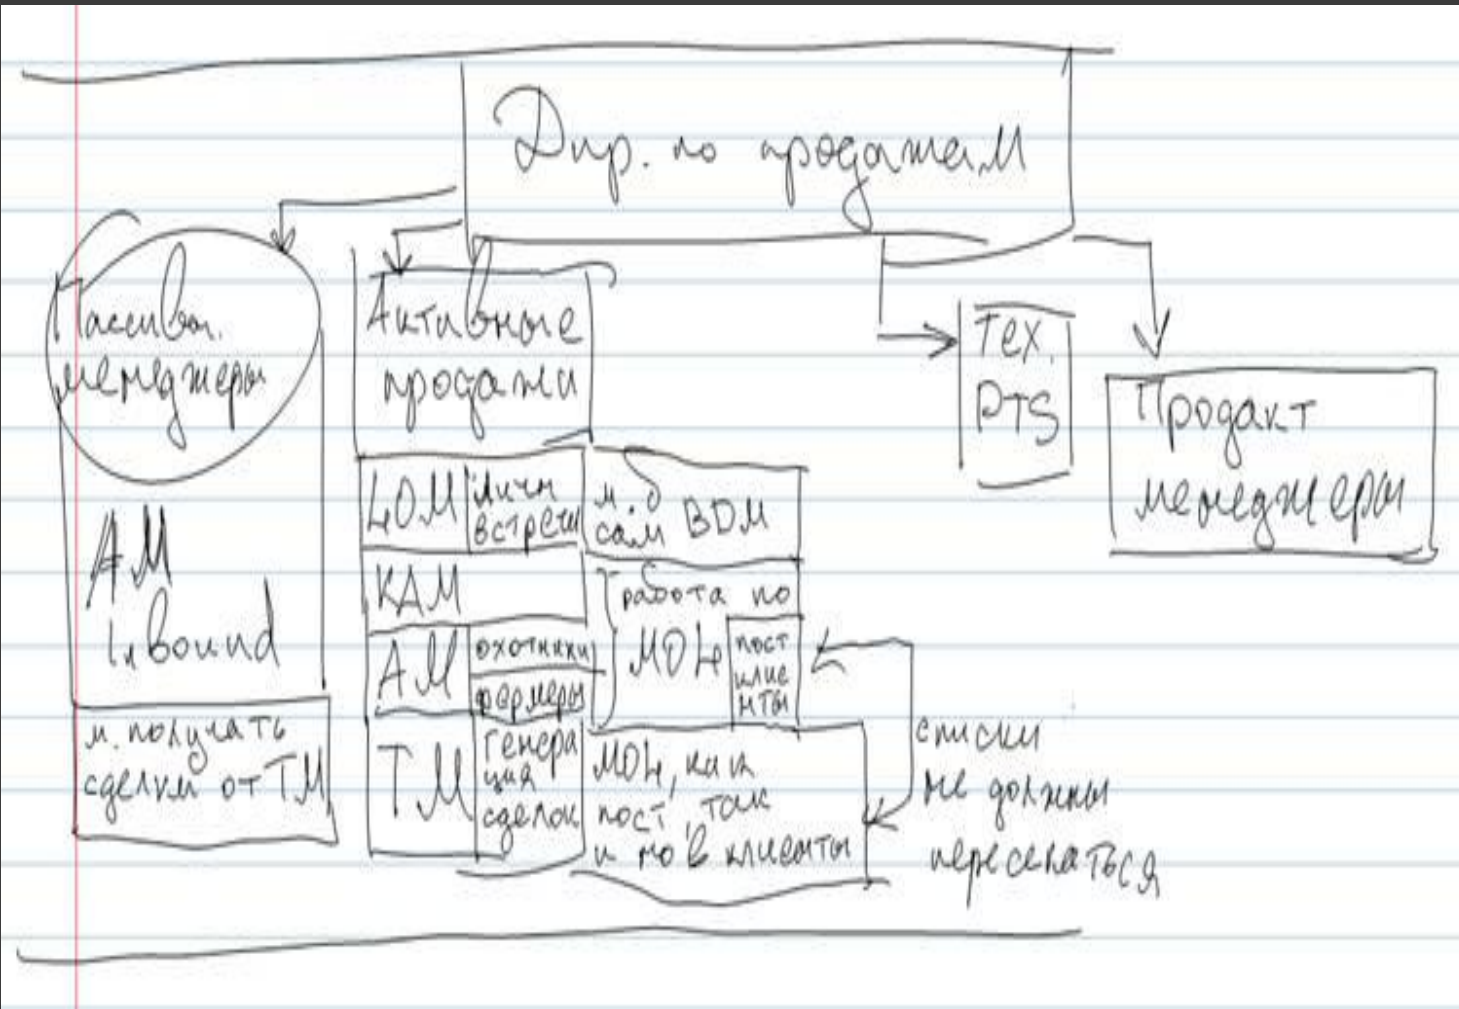 Дир. по продажам
Пассивн.
менеджеры
AM
Inbound
м. получать
сделки от ТМ
Активные
продажи
личн
встречи
м. б
сам BDM
КАМ
работа по
АМ
охотники
фермеры
пост
клие
нты
ТМ
генера
ция
сделок
как
пост, так
и нов клиенты
списки
не должны
пересекаться
Тех.
PTS
Продакт
менеджеры